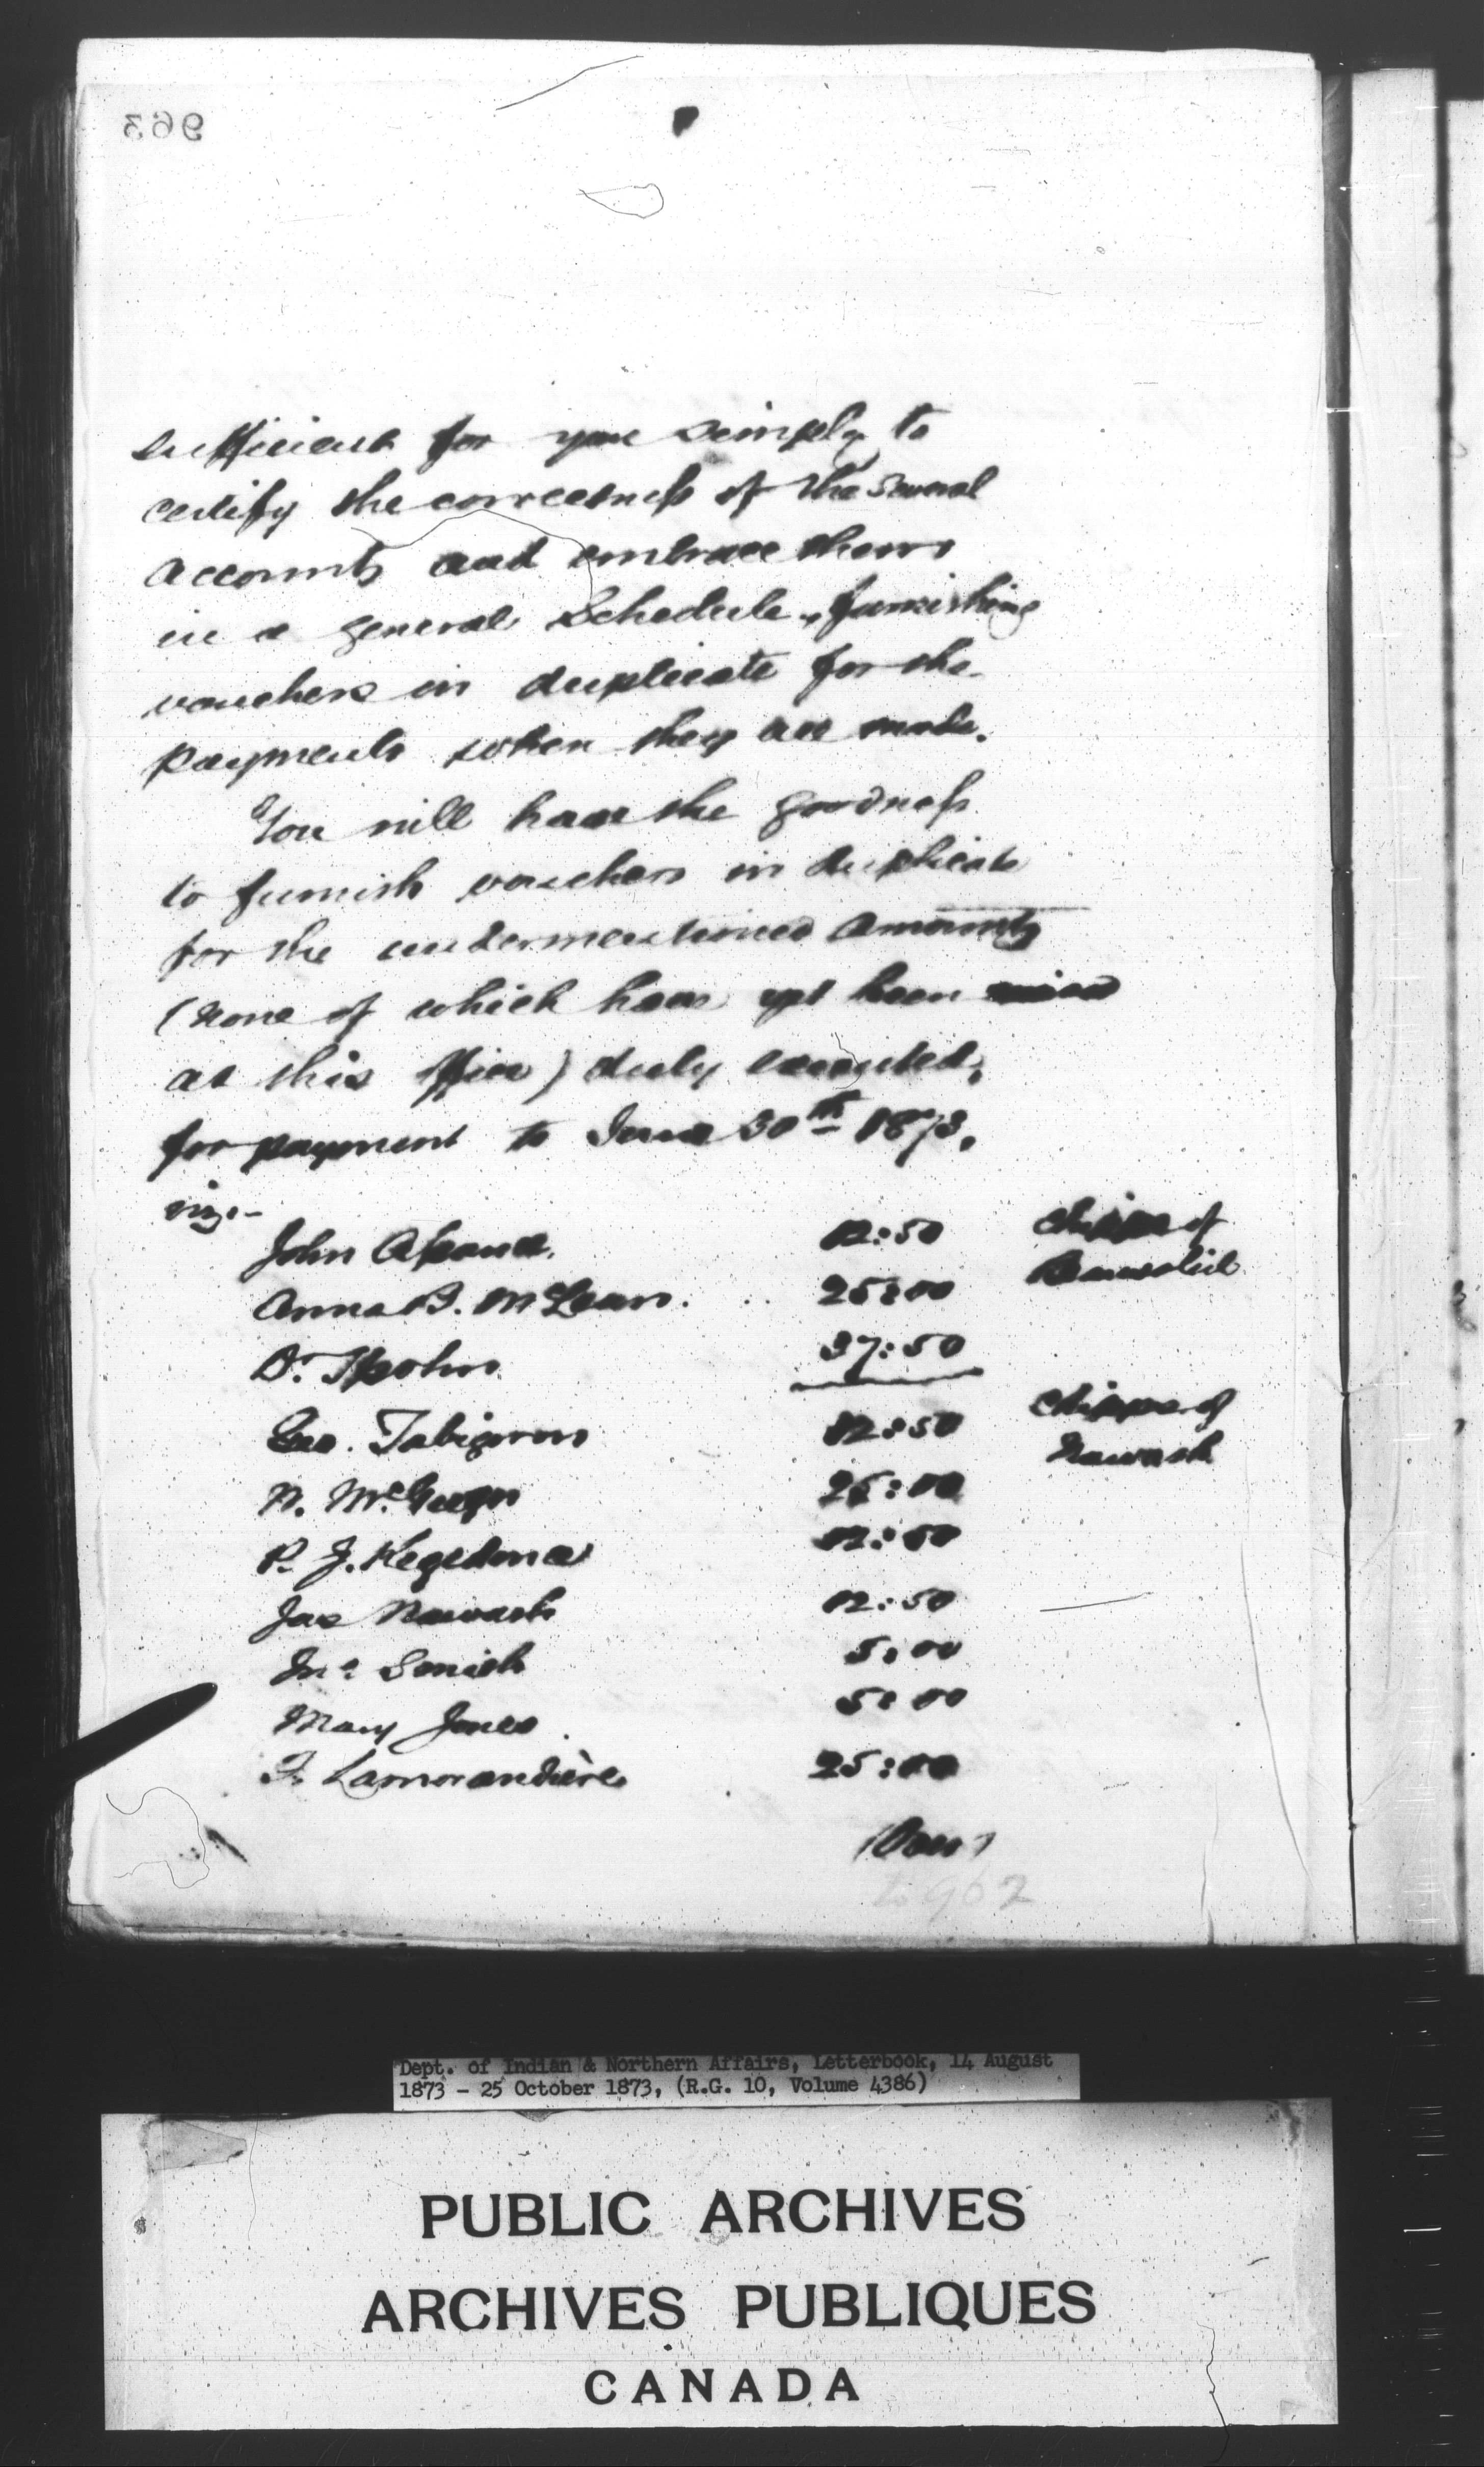 963
sufficient for you simply to
certify the correctness of the several
accounts and embrace them
in a general Schedule, furnishing
vouchers in duplicate for the
payments when they are made.
You will have the goodness
to furnish vouchers in duplicate
for the undermentioned amounts
(none of which have yet been
at this office) duly executed,
for payment to June 30th 1873,
viz:-
John 12:50 Chippas of
Anna B. McLean. 25:00
Dr. Spohn 37:50
Geo. Tabigwon 12:50 Chippas of
Nawash
N. 25:00
P. J. Kegedonce 12:50
Jas Nawash 12:50
Jno Smith 5:00
Mary Jones 5:00
F. Lamorandière 25:00
(Over)
to 962
Dept. of Indian & Northern Affairs, Letterbook, 14 August
1873 - 25 October 1873, (R.G. 10, Volume 4386)
PUBLIC ARCHIVES
ARCHIVES PUBLIQUES
CANADA